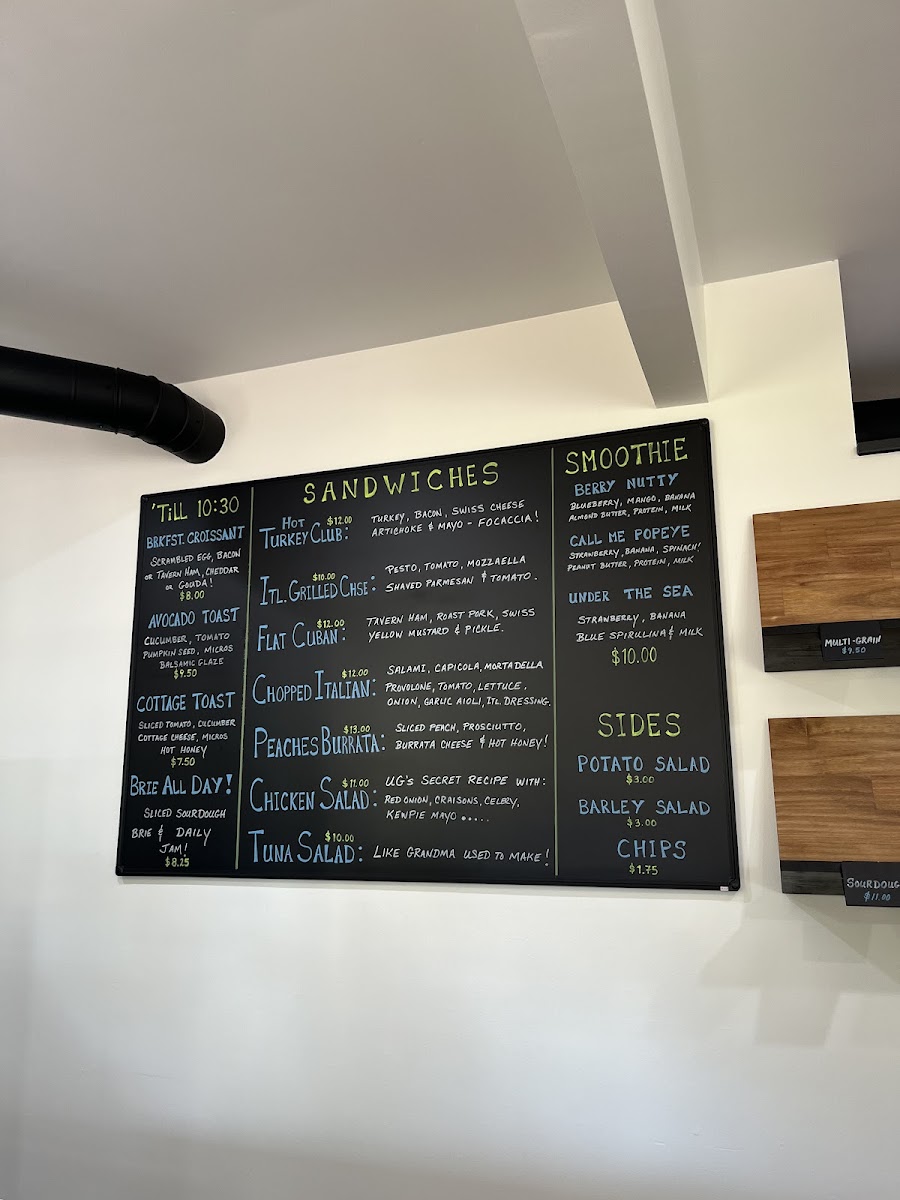 'TILL 10:30
BRKFST. CROISSANT
SCRAMBLED EGG, BACON
OR TAVERN HAM, CHEDDAR
OR GOUDA!
$8.00
AVOCADO TOAST
CUCUMBER, TOMATO
PUMPKIN SEED, MICROS
BALSAMIC GLAZE
$9.50
COTTAGE TOAST
SLICED TOMATO, CUCUMBER
COTTAGE CHEESE, MICROS
HOT HONEY
$7.50
BRIE ALL DAY!
SLICED SOURDOUGH
BRIE & DAILY
JAM!
$8.25
SANDWICHES
HOT $12.00
TURKEY CLUB:
TURKEY, BACON, SWISS CHEESE
ARTICHOKE & MAYO - FOCACCIA!
$10.00
ITL. GRILLED CHSE:
PESTO, TOMATO, MOZZAELLA
SHAVED PARMESAN & TOMATO.
$12.00
FLAT CUBAN:
TAVERN HAM, ROAST PORK, SWISS
YELLOW MUSTARD & PICKLE.
$12.00
CHOPPED ITALIAN:
SALAMI, CAPICOLA, MORTADELLA
PROVOLONE, TOMATO, LETTUCE,
ONION, GARLIC AIOLI, ITL. DRESSING.
$13.00
PEACHES BURRATA:
SLICED PEACH, PROSCIUTTO,
BURRATA CHEESE & HOT HONEY!
$11.00
CHICKEN SALAD:
UG'S SECRET RECIPE WITH:
RED ONION, CRAISONS, CELERY,
KENPIE MAYO .....
$10.00
TUNA SALAD:
LIKE GRANDMA USED TO MAKE!
SMOOTHIE
BERRY NUTTY
BLUEBERRY, MANGO, BANANA
ALMOND BUTTER, PROTEIN, MILK
CALL ME POPEYE
STRAWBERRY, BANANA, SPINACH!
PEANUT BUTTER, PROTEIN, MILK
UNDER THE SEA
STRANBERRY, BANANA
BLUE SPIRULINA & MILK
$10.00
SIDES
POTATO SALAD
$3.00
BARLEY SALAD
$3.00
CHIPS
$1.75
MULTI-GRAIN
$9.50
SOURDOUG
$11.00